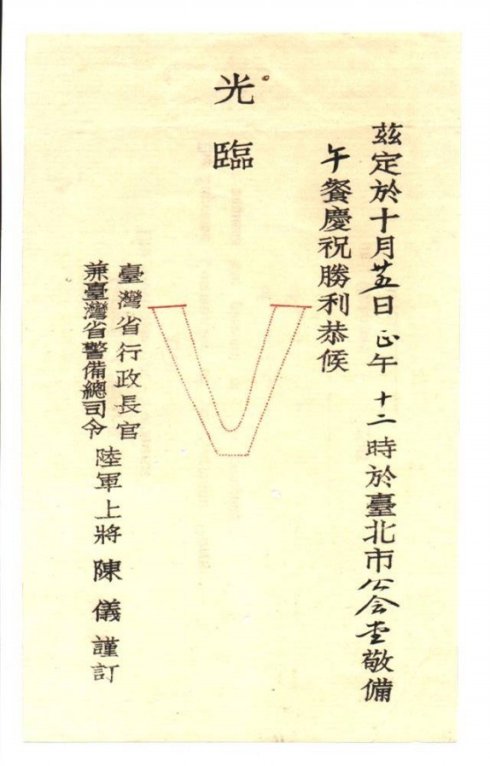 茲定於十月廿五日正午十二時於臺北市公会堂敬備
午餐慶祝勝利恭候
光臨
臺灣省行政長官
兼臺灣省警備總司令
陸軍上將 陳儀 謹訂